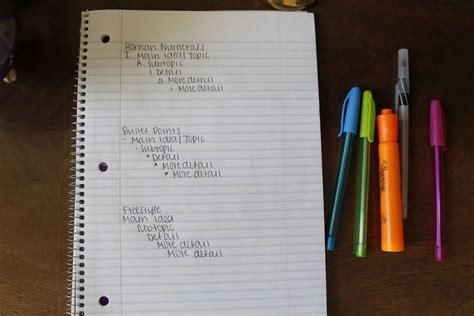 Roman Numerals
I. Main idea/Topic
A. Subtopic
i. Detail
a. More detail
i. More detail
Bullet Points
- Main idea/Topic
- Subtopic
* Detail
* More detail
* More detail
Freestyle
Main idea
Subtopic
Detail
More detail
More detail
Sharpie